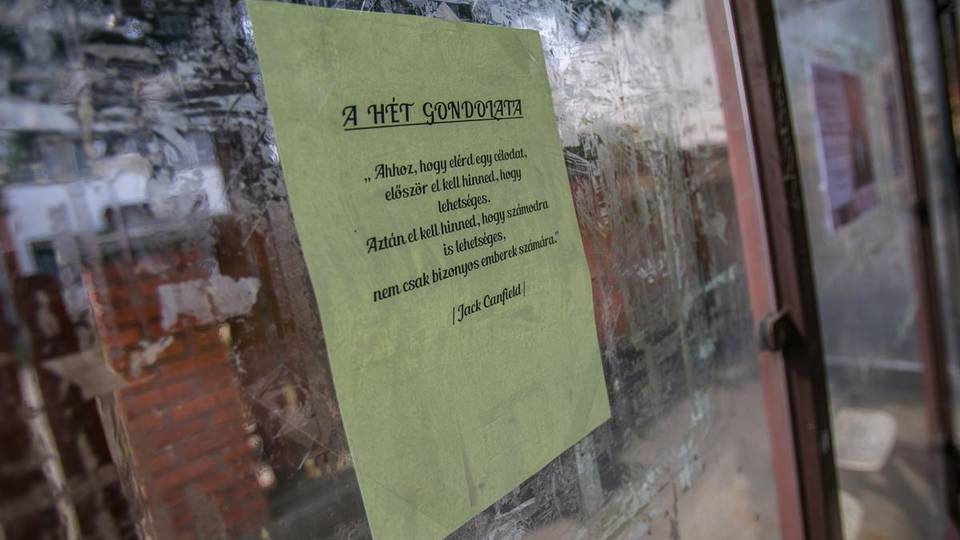 A HÉT GONDOLATA
„Ahhoz, hogy elérd egy célodat,
először el kell hinned, hogy
lehetséges.
Aztán el kell hinned, hogy számodra
is lehetséges,
nem csak bizonyos emberek számára.”
|Jack Canfield|